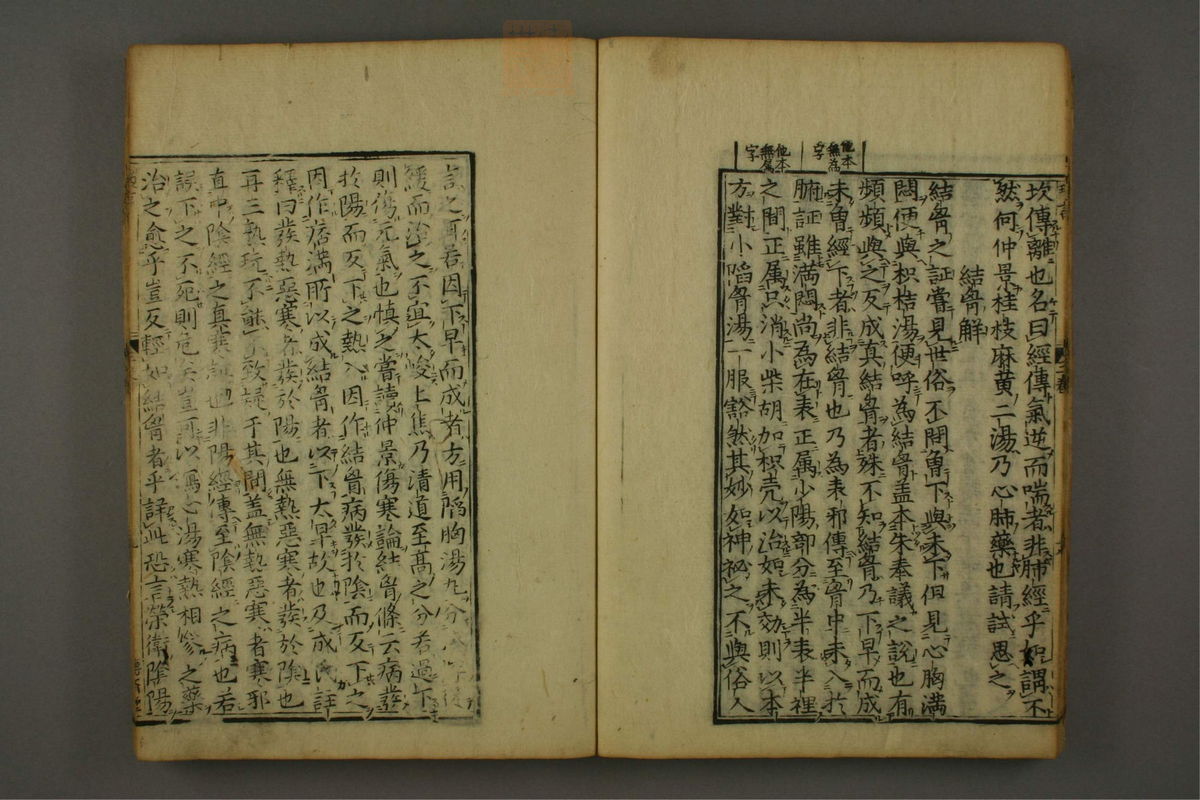 坎傳離也名曰經傳氣逆而喘者非肺經乎如謂不
然何仲景桂枝麻黄二湯乃心肺藥也請試思之
結胷解
結胷之証嘗見世俗不問曾下與未下但見心胸滿
悶便與枳桔湯便呼為結胷盖本朱奉議之説也有
頻頻與之反成真結胷者殊不知結胷乃下早而成
未曾經下者非結胷也乃為表邪傳至胷中未入於
腑証雖滿悶尚為在表正属少陽部分為半表半裡
之間正属只消小柴胡加枳壳以治如未効則以本
方對小陷胷湯一服豁然其妙如神秘之不與俗人
他本無為字
他本無属字
言之耳若因下早而成者方用陷胸湯丸分
緩而治之不宜太峻上焦乃清道至髙之分若過下
則傷元氣也慎之嘗讀仲景傷寒論結胷條云病發
於陽而反下之熱入因作結胷病發於陰而反下之
因作痞滿所以成結胷者以下太早故也及成氏註
釋曰發熱惡寒者發於陽也無熱惡寒者發於陰也
再三熟玩不能致疑于其間盖無熱惡寒者寒邪
直中陰經之真寒証也非陽經傳至陰經之病也若
誤下之不死則危矣豈可以瀉心湯寒熱相參之藥
治之愈乎豈反輕如結胷者乎詳此恐言榮衛陰陽